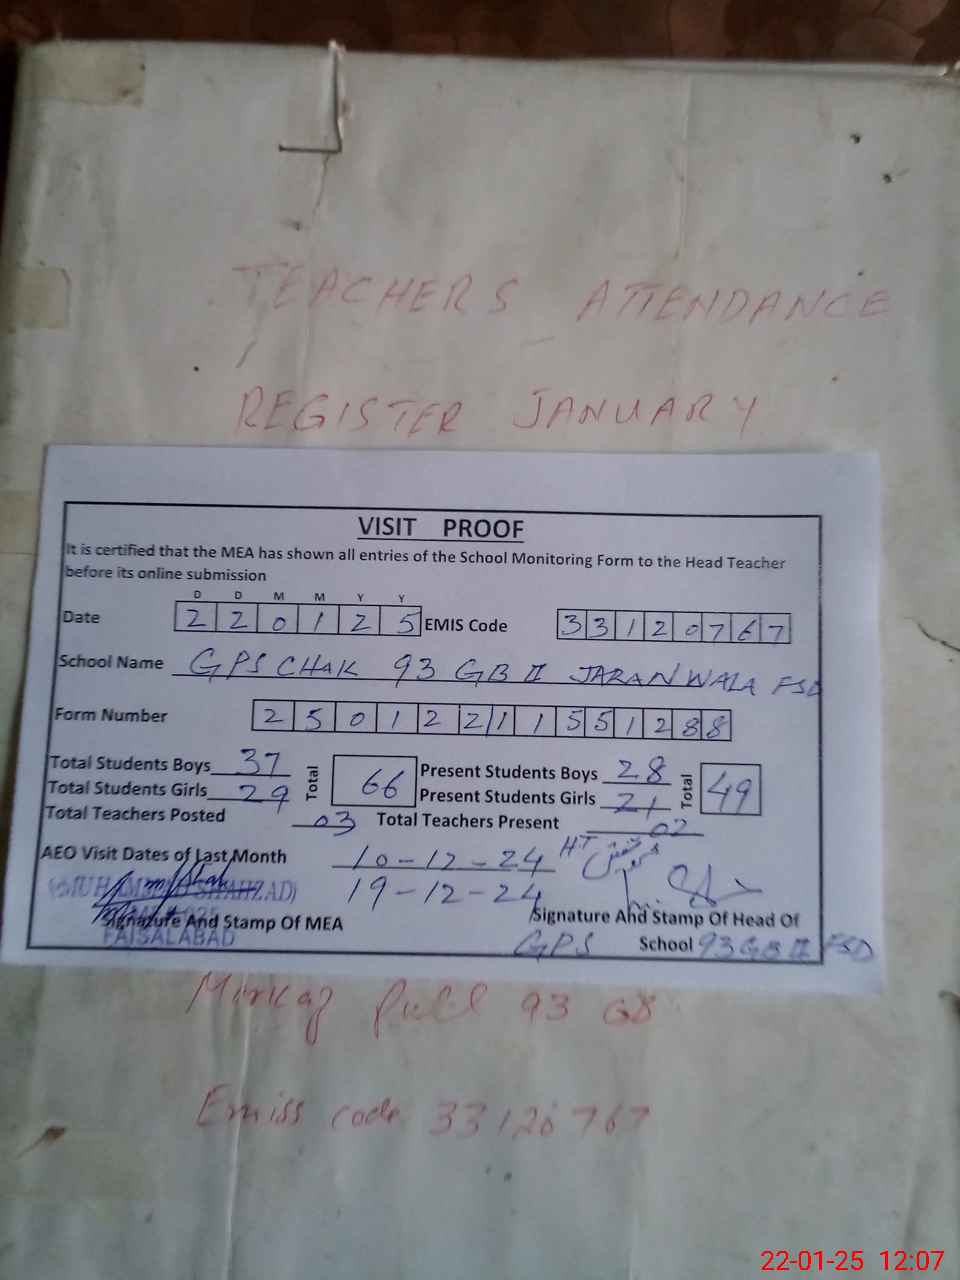 TEACHERS ATTENDANCE
REGISTER JANUARY
VISIT PROOF
It is certified that the MEA has shown all entries of the School Monitoring Form to the Head Teacher
before its online submission
D D M M Y Y
Date 2 2 0 1 2 5 EMIS Code 3 3 1 2 0 7 6 7
School Name GPS CHAK 93 GB II JARANWALA FSD
Form Number 2 5 0 1 2 2 1 1 5 5 1 2 8 8
Total Students Boys 37 Total 66 Present Students Boys 28 Total 49
Total Students Girls 29 Present Students Girls 21
Total Teachers Posted 03 Total Teachers Present 02
AEO Visit Dates of Last Month 10-12-24 HT
(MUHAMMAD SHAHZAD) 19-12-24
Signature And Stamp Of MEA Signature And Stamp Of Head Of
FAISALABAD GPS School 93 GB II FSD
93 GB
Emiss code 33120767
22-01-25 12:07